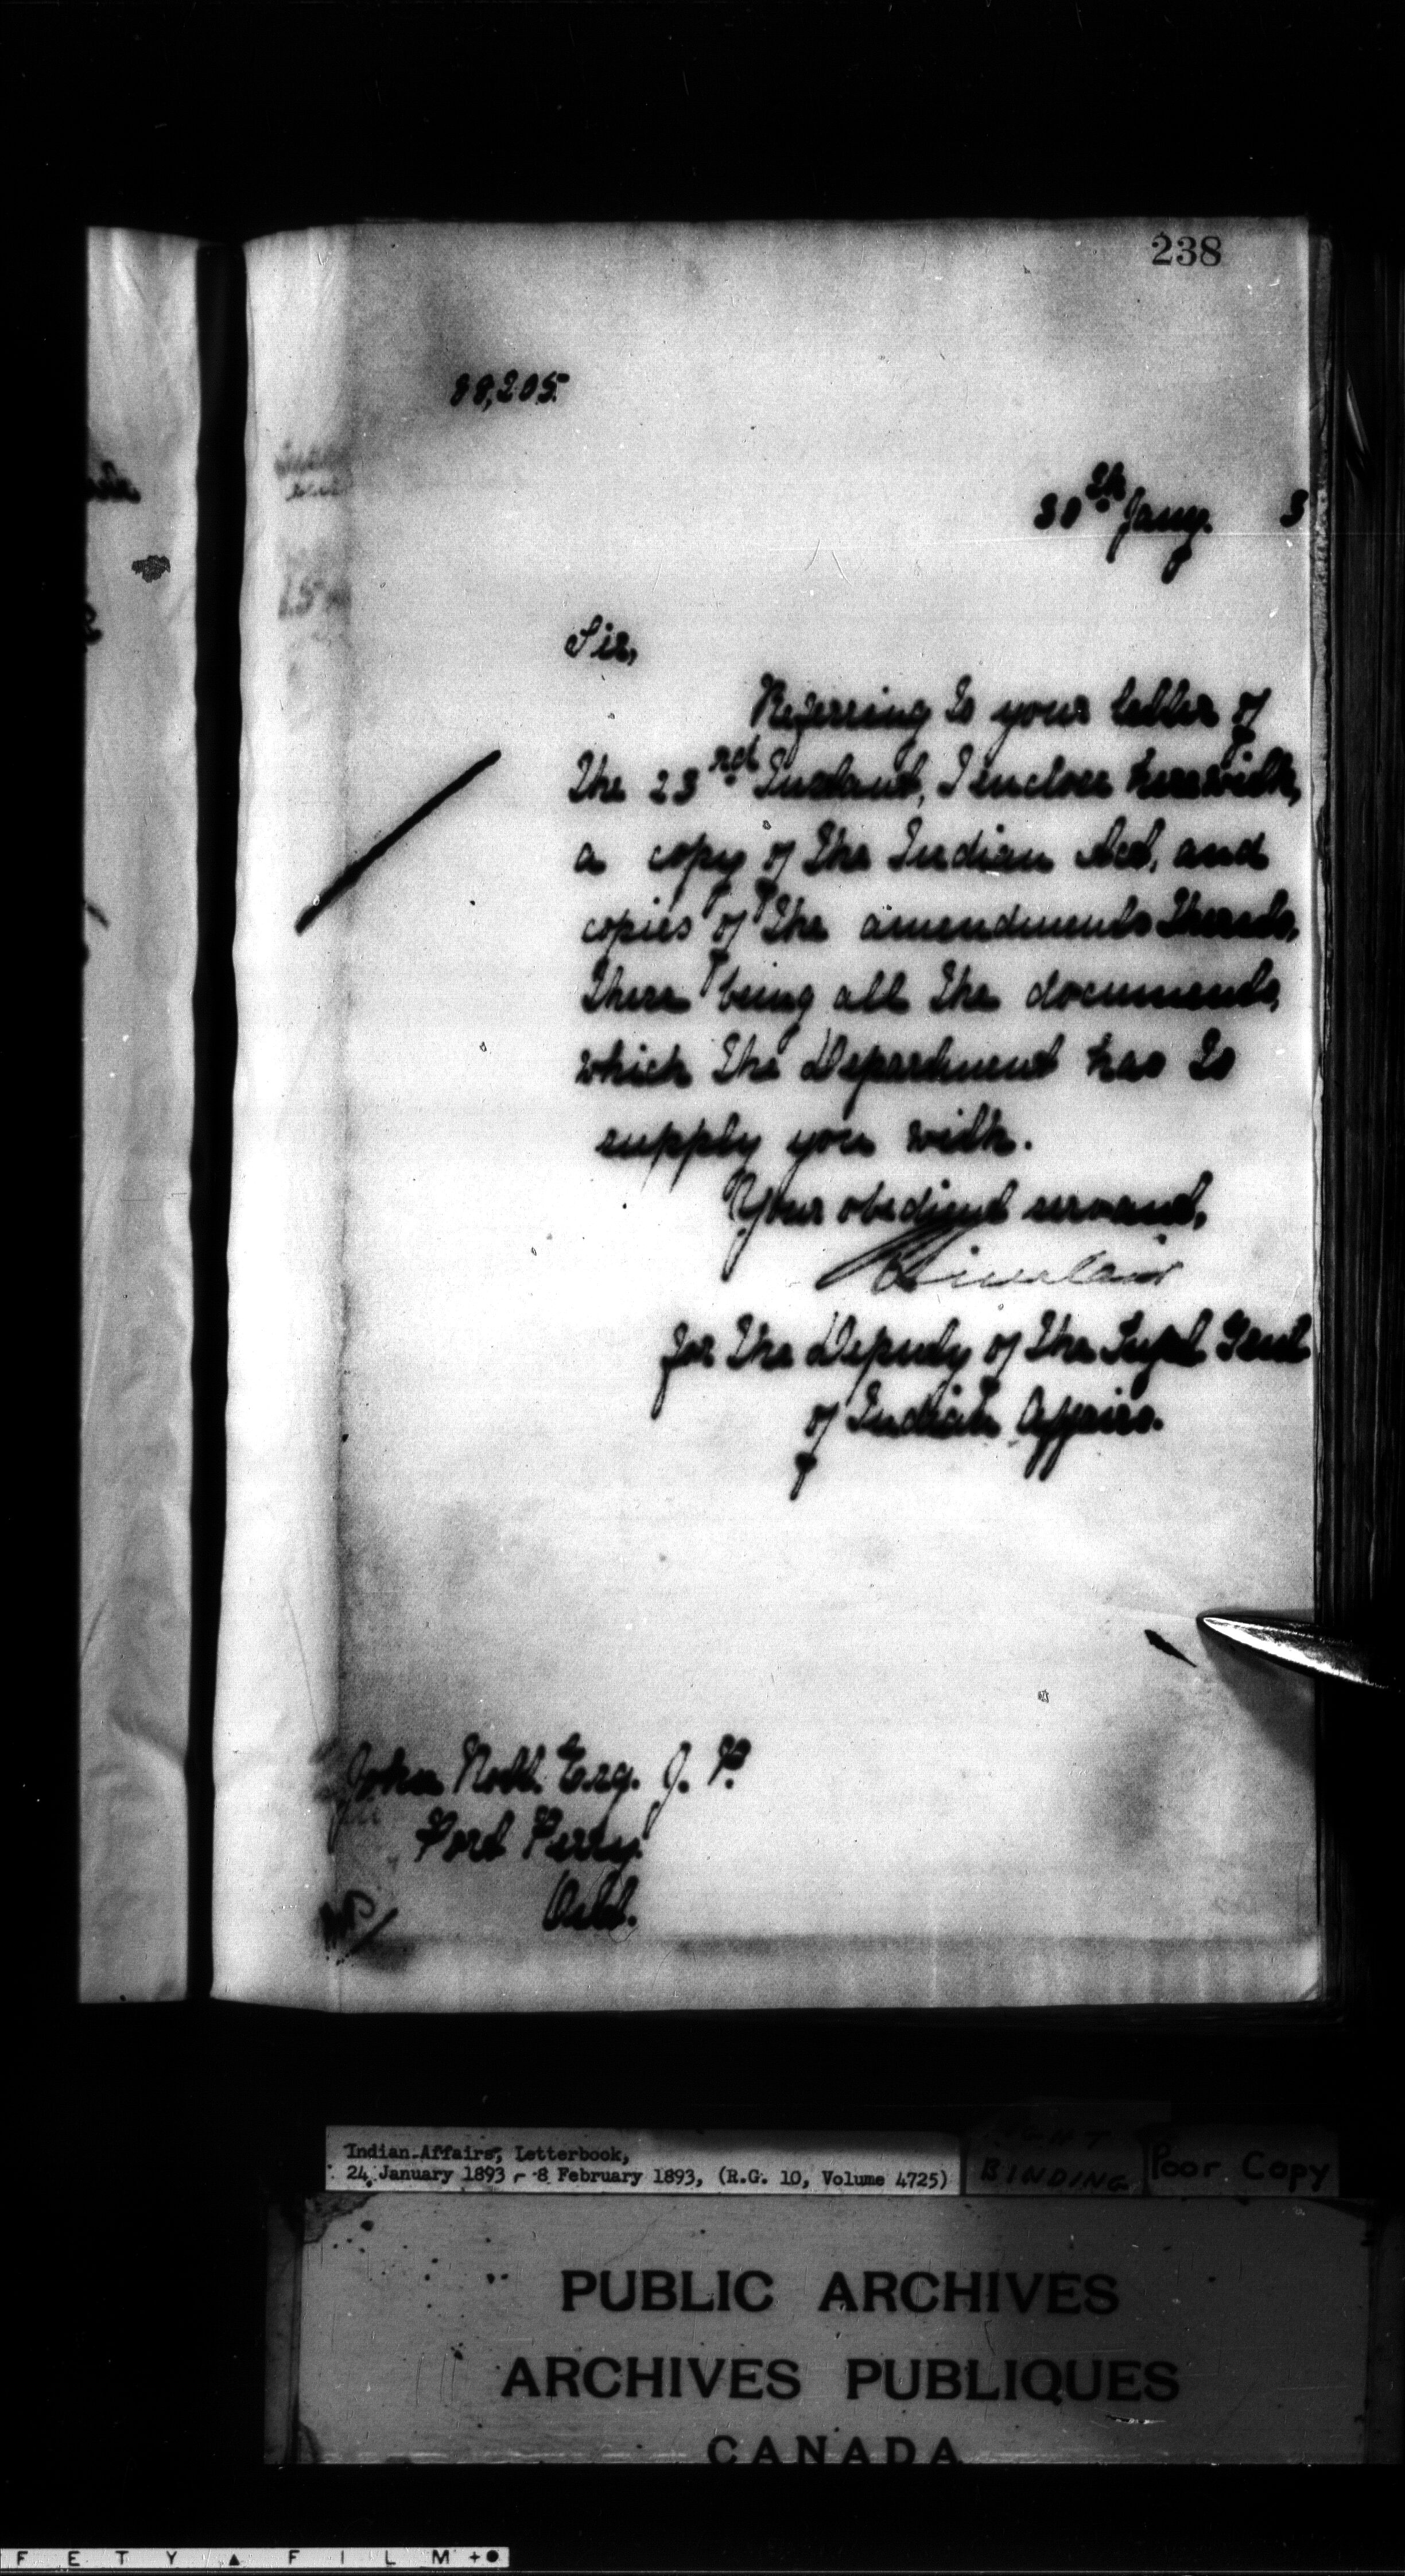 238
88,205
30th Jany. 3
Sir,
Referring to your letter of
the 23rd Instant, I enclose herewith,
a copy of the Indian Act, and
copies of the amendments thereto,
these being all the documents,
which the Department has to
supply you with.
Your obedient servant,
Sinclair
for the Deputy of the Supt Genl
of Indian Affairs.
John Nott Esq. J. P.
Port Perry.
Ont.
Indian Affairs, Letterbook,
24 January 1893 - 8 February 1893, (R.G. 10, Volume 4725)
BINDING
Poor Copy
PUBLIC ARCHIVES
ARCHIVES PUBLIQUES
CANADA
FETY ▲ FILM +●